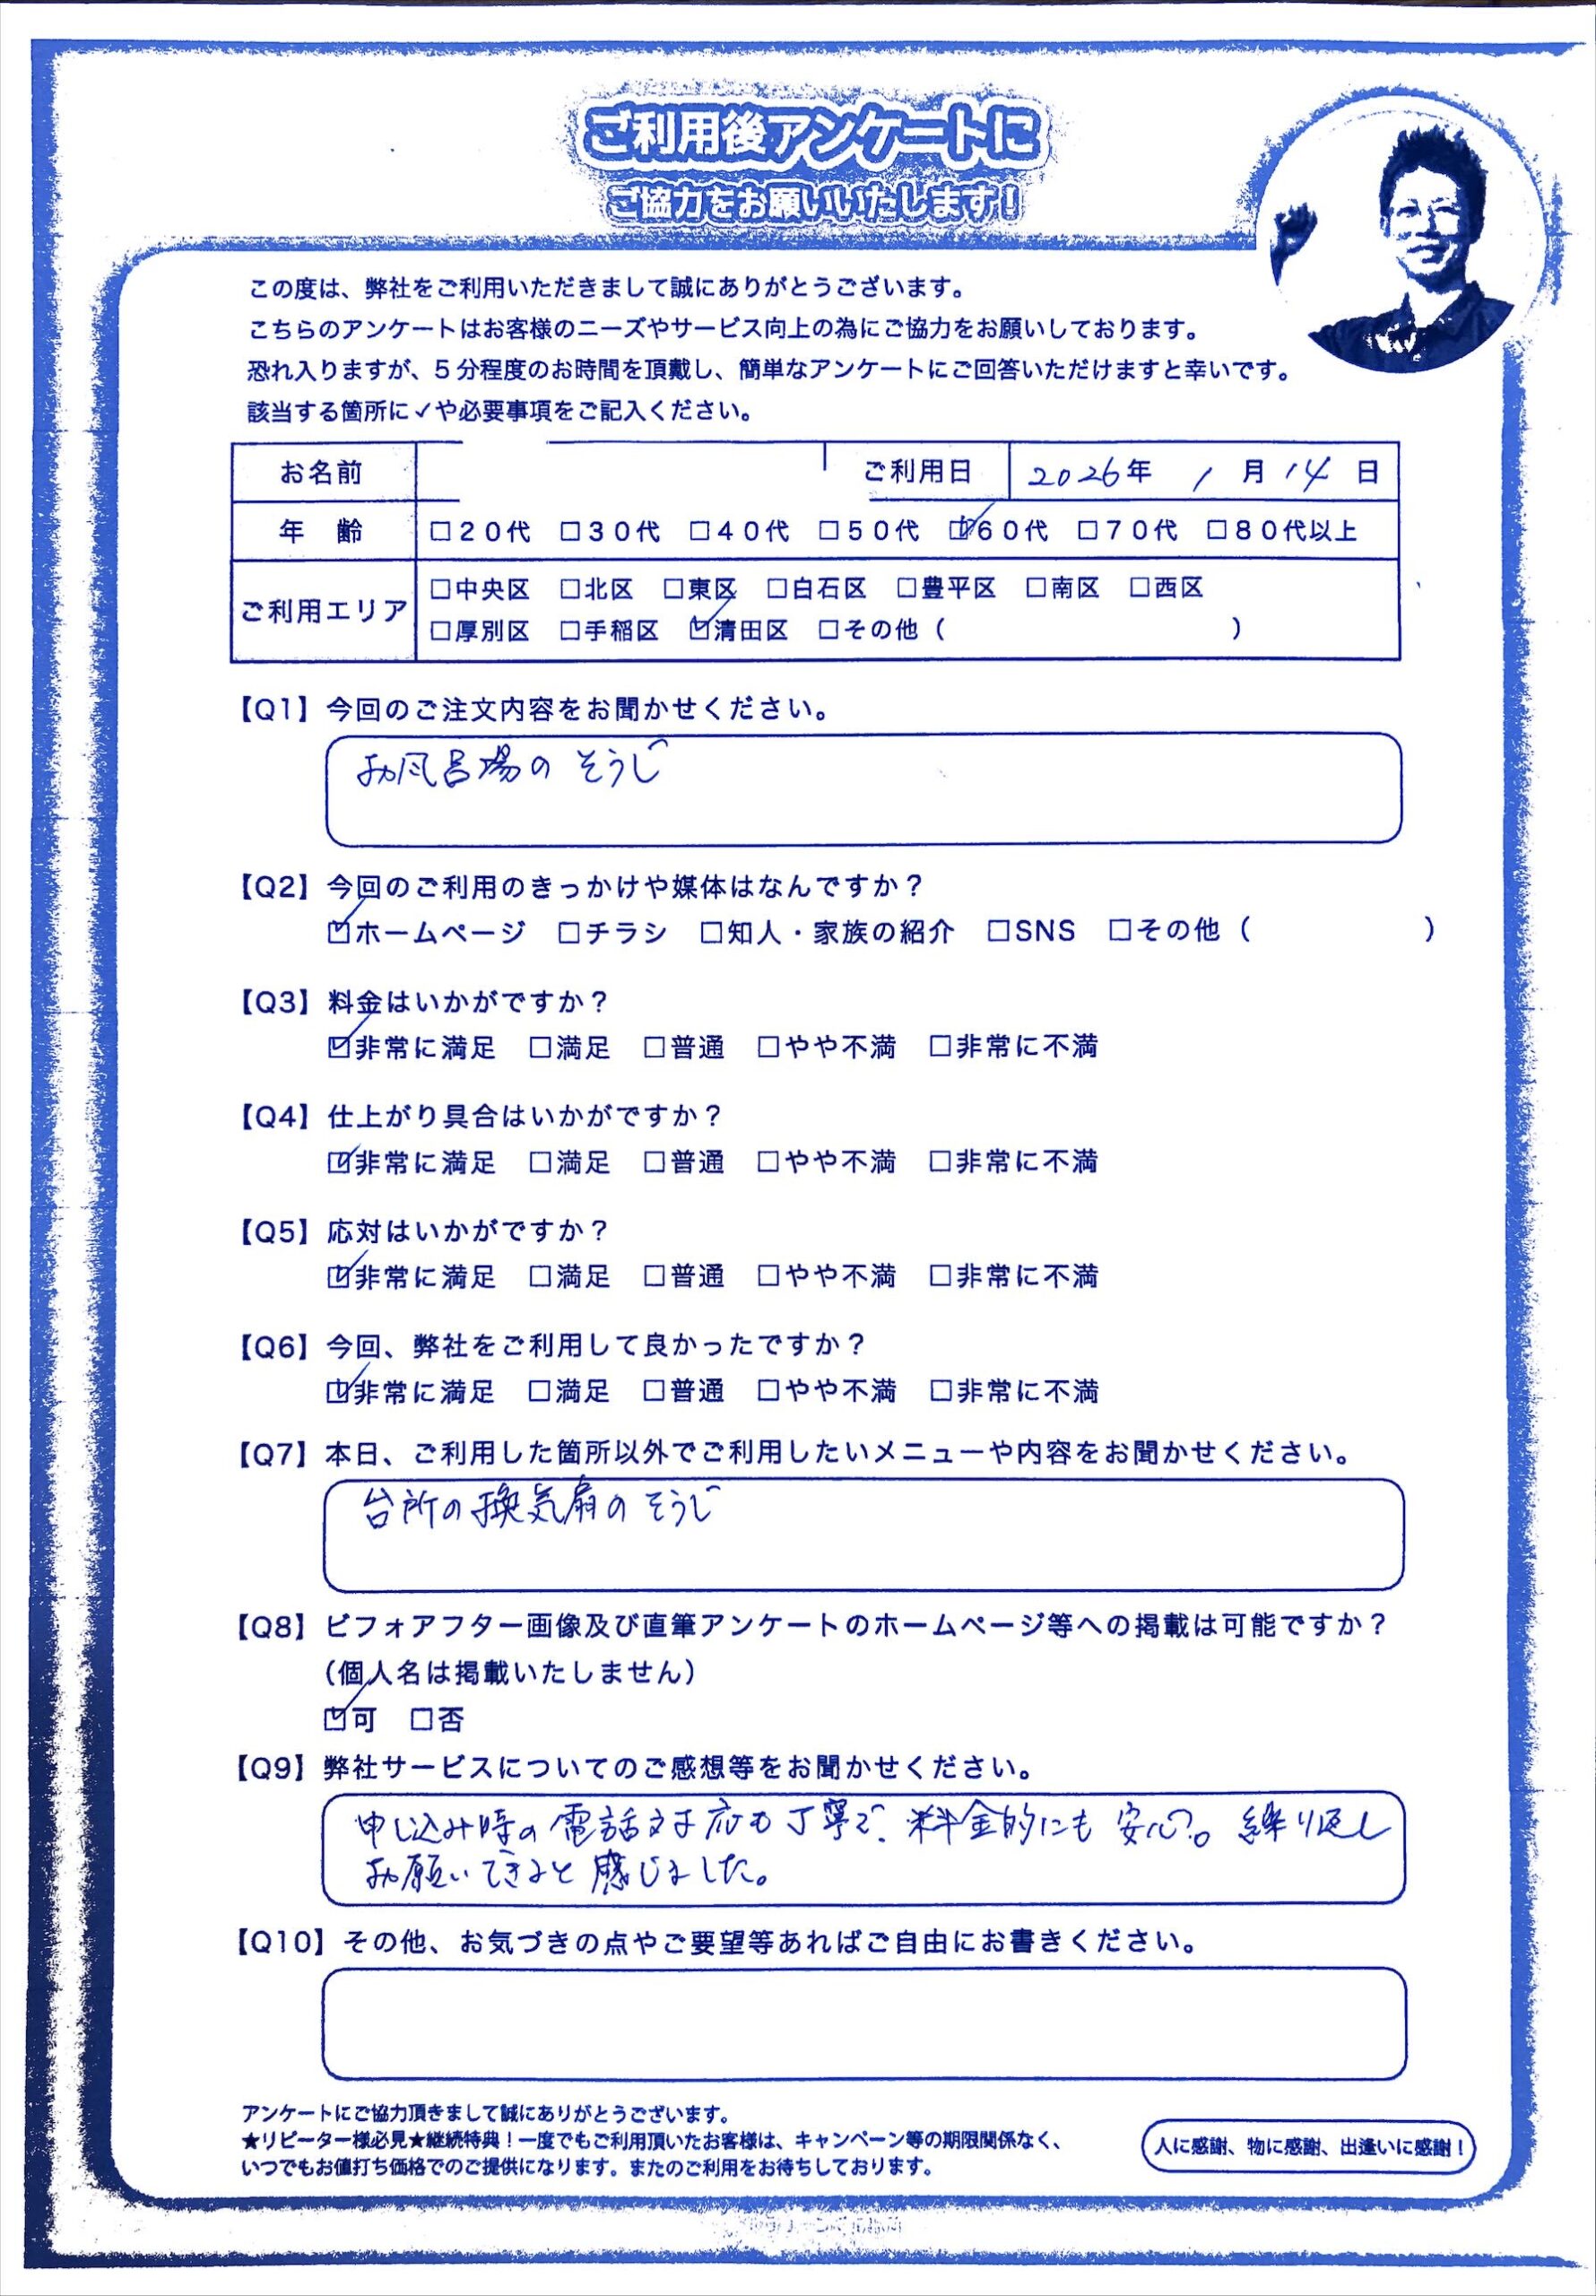 ご利用後アンケートに
ご協力をお願いいたします!
この度は、弊社をご利用いただきまして誠にありがとうございます。
こちらのアンケートはお客様のニーズやサービス向上の為にご協力をお願いしております。
恐れ入りますが、5分程度のお時間を頂戴し、簡単なアンケートにご回答いただけますと幸いです。
該当する箇所に✓や必要事項をご記入ください。
お名前 ご利用日 2026年 1月14日
年 齢 □20代 □30代 □40代 □50代 ☑60代 □70代 □80代以上
ご利用エリア □中央区 □北区 □東区 □白石区 □豊平区 □南区 □西区
□厚別区 □手稲区 ☑清田区 □その他( )
【Q1】今回のご注文内容をお聞かせください。
お風呂場の そうじ
【Q2】今回のご利用のきっかけや媒体はなんですか?
☑ホームページ □チラシ □知人・家族の紹介 □SNS □その他( )
【Q3】料金はいかがですか?
☑非常に満足 □満足 □普通 □やや不満 □非常に不満
【Q4】仕上がり具合はいかがですか?
☑非常に満足 □満足 □普通 □やや不満 □非常に不満
【Q5】応対はいかがですか?
☑非常に満足 □満足 □普通 □やや不満 □非常に不満
【Q6】今回、弊社をご利用して良かったですか?
☑非常に満足 □満足 □普通 □やや不満 □非常に不満
【Q7】本日、ご利用した箇所以外でご利用したいメニューや内容をお聞かせください。
台所の換気扇の そうじ
【Q8】ビフォアフター画像及び直筆アンケートのホームページ等への掲載は可能ですか?
(個人名は掲載いたしません)
☑可 □否
【Q9】弊社サービスについてのご感想等をお聞かせください。
申し込み時の電話対応も丁寧で、料金的にも安心。繰り返し
お願いできると感じました。
【Q10】その他、お気づきの点やご要望等あればご自由にお書きください。
アンケートにご協力頂きまして誠にありがとうございます。
★リピーター様必見★継続特典!一度でもご利用頂いたお客様は、キャンペーン等の期限関係なく、
いつでもお値打ち価格でのご提供になります。またのご利用をお待ちしております。
人に感謝、物に感謝、出逢いに感謝!